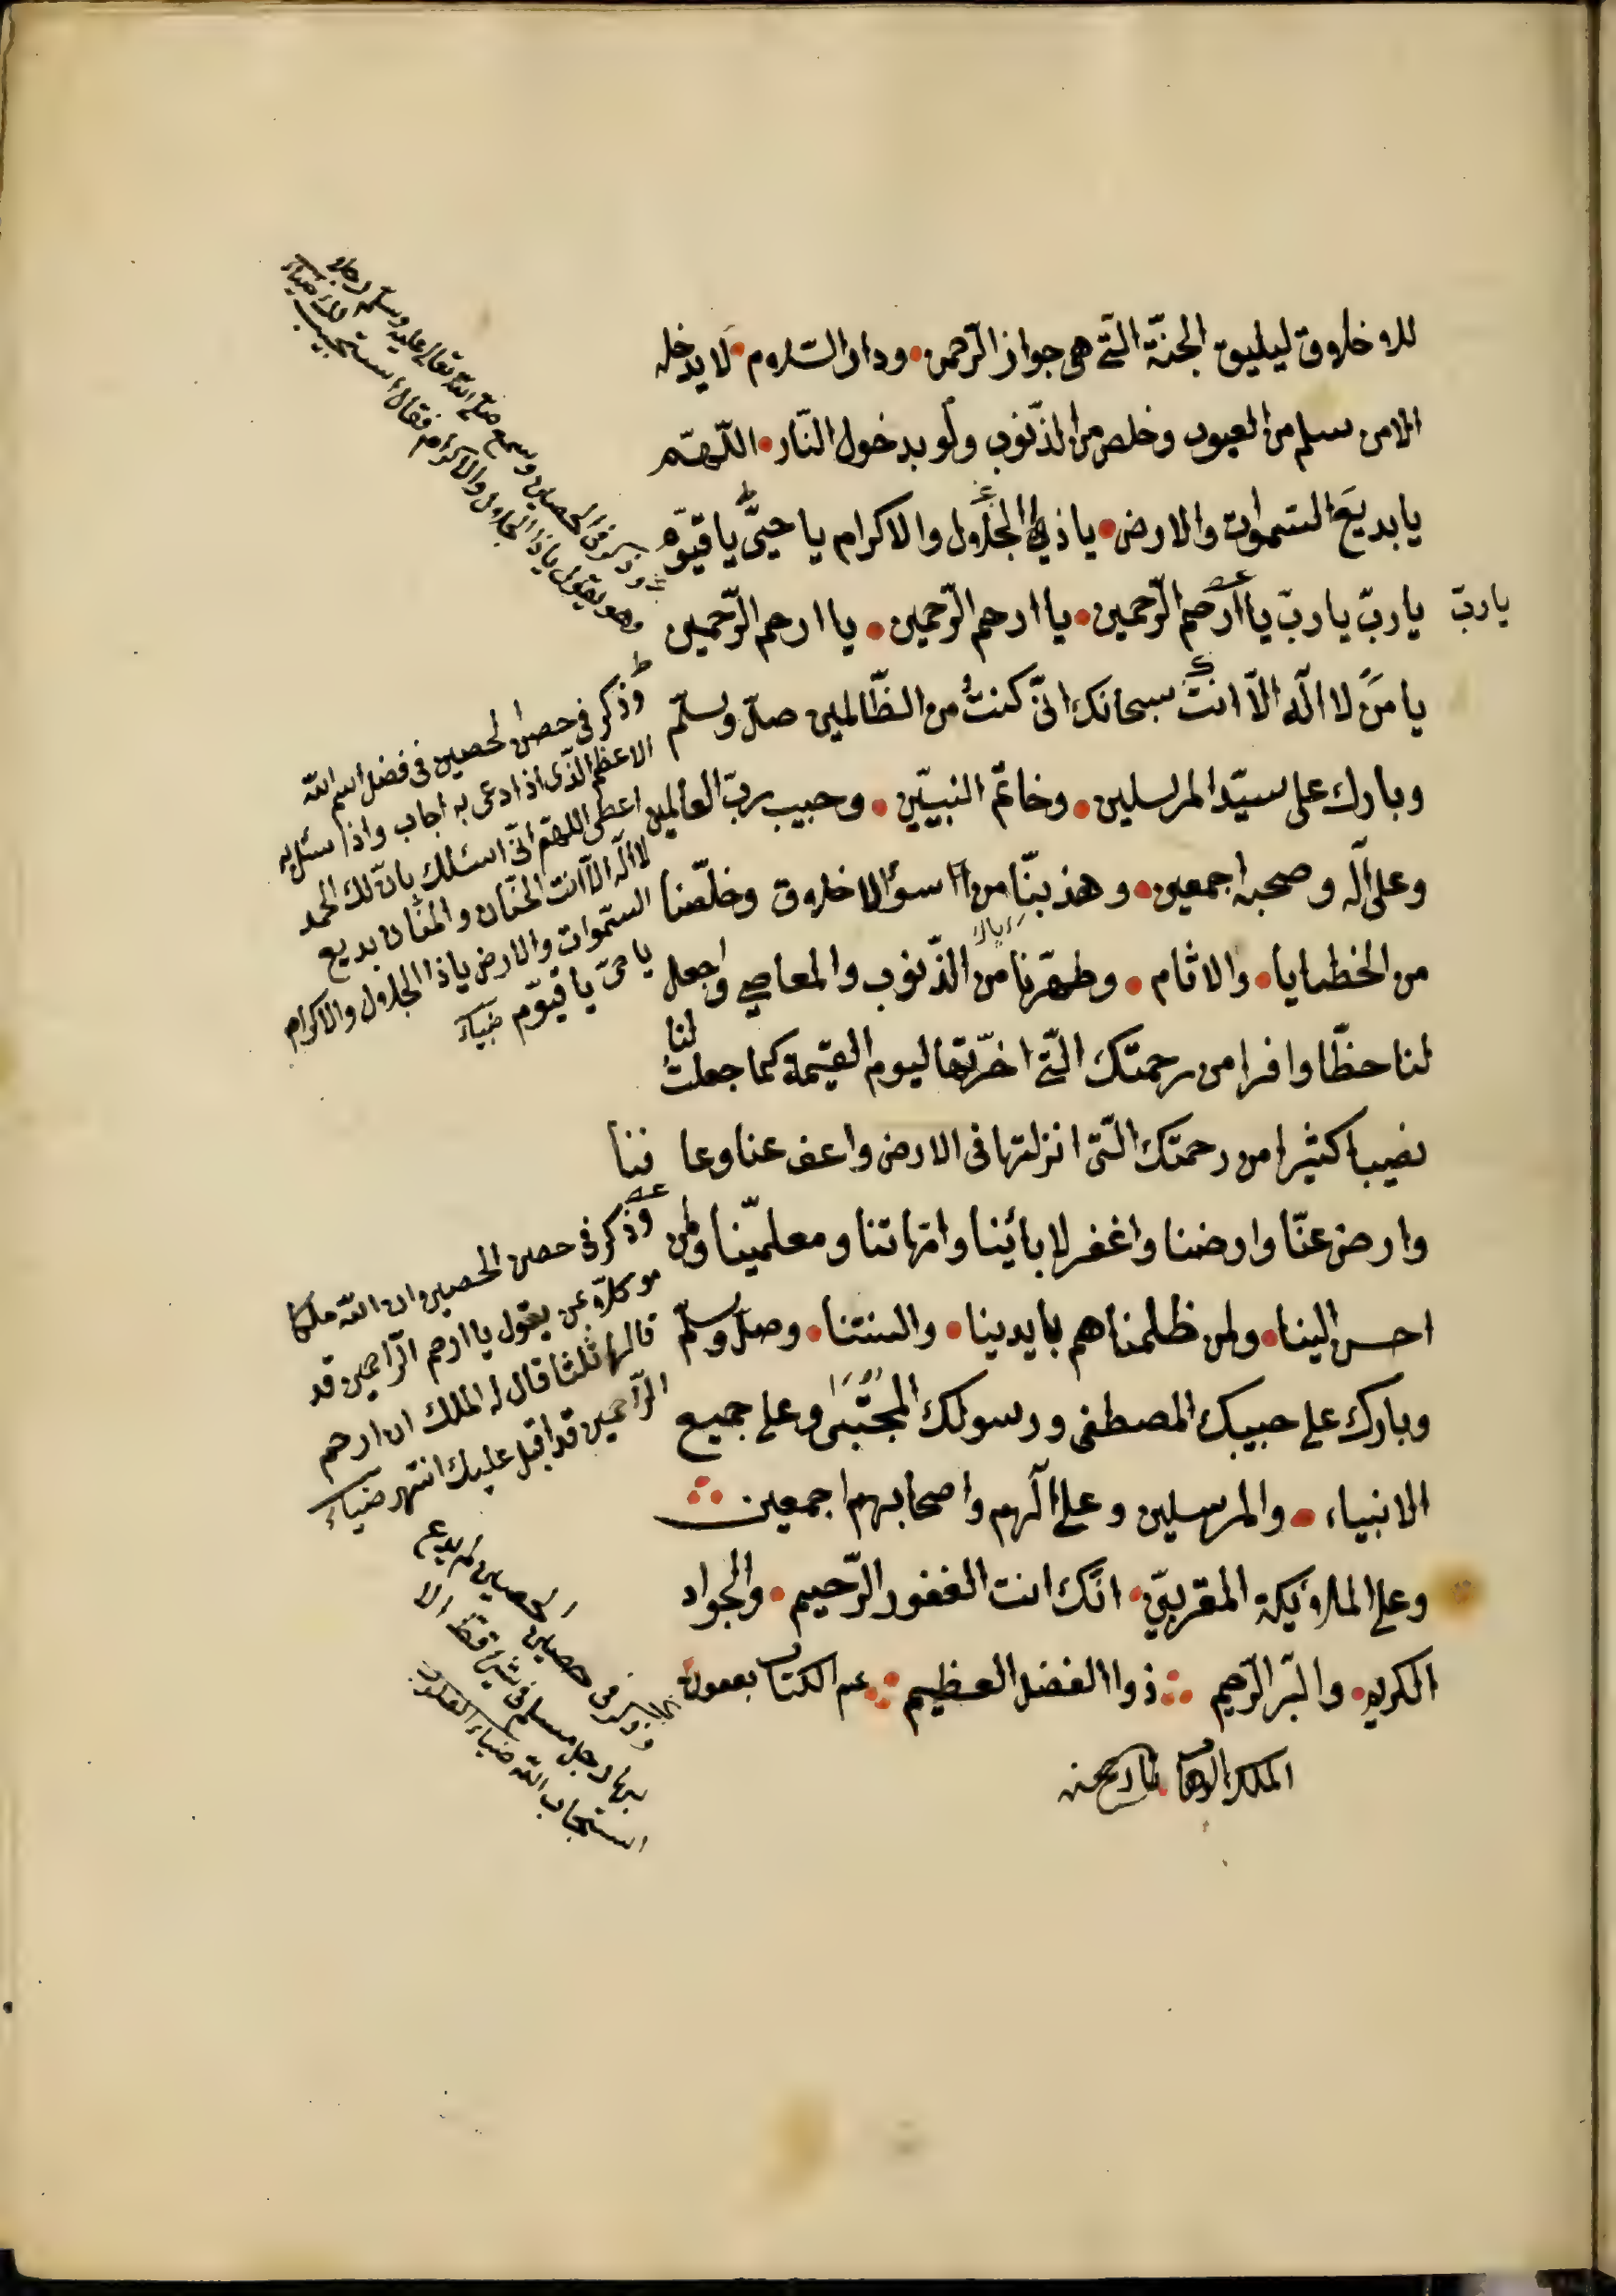 للاخلاق ليليق الجنّة الّتى هى جوار الرّحمن • ودار السّلام • لا يدخله
الا من سلم من العيوب وخلص من الذّنوب ولو بدخول النّار • اللّهمّ
يا بديعَ السّموات والارض • يا ذا الجلال والاكرام يا حىّ يا قيّوم
يا ربّ يا ربّ يا ربّ يا ارحم الرّحمين • يا ارحم الرّحمين • يا ارحم الرّحمين
يا مَن لا اله الّا انت سبحانك انّى كنتُ من الظّالمين صلّ وسلّم
وبارك على سيّد المرسلين • وخاتم النبيّين • وحبيب ربّ العالمين
وعلى آله وصحبه اجمعين • وهذبنّا من سؤ الاخلاق وخلّصنا
من الخطايا • والاثام • وطهّرنا من الذّنوب والمعاصى واجعل
لنا حظّا وافرا من رحمتك الّتى اخّرتها ليوم القيمة كما جعلت لنا
نصيبا كثيرا من رحمتك الّتى انزلتها فى الارض واعف عنا وعافنا
وارض عنّا وارضنا واغفر لابائنا وامّهاتنا ومعلمّينا ولمن
احسن الينا • ولمن ظلمناهم بايدينا • والسنتنا • وصلّ وسلّم
وبارك على حبيبك المصطفى ورسولك المجتبى وعلى جميع
الانبياء • والمرسلين وعلى آلهم واصحابهم اجمعين
وعلى الملائكة المقرّبين • انّك انت الغفور الرّحيم • والجواد
الكريم • والبّر الرّحيم ذوا الفضل العظيم تم الكتاب بعون
الملك الوهاب
وذكر فى الحصين وسمع صلى الله تعالى عليه وسلم رجلا
وهو يقول يا ذا الجلال والاكرام فقال استجيب لك ضياء
وذكر فى حصن الحصين فى فضل اسم الله
الاعظم الّذى اذا دعى به اجاب واذا سئل به
اعطى اللهمّ انّى اسئلك بانّ لك الحمد
لا اله الّا انت الحنّان والمنّان بديع
السّموات والارض يا ذا الجلال والاكرام
يا حىّ يا قيّوم ضياء
وذكر فى حصن الحصين ان الله ملكا
موكلا بمن يقول يا ارحم الرّاحمين فمن
قالها ثلثا قال له الملك ان ارحم
الرّاحمين قد اقبل عليك انتهى ضياء
وذكر فى حصين الحصين لم يدع
بها رجل مسلم فى شئ قط الا
استجاب الله ضياء القلوب